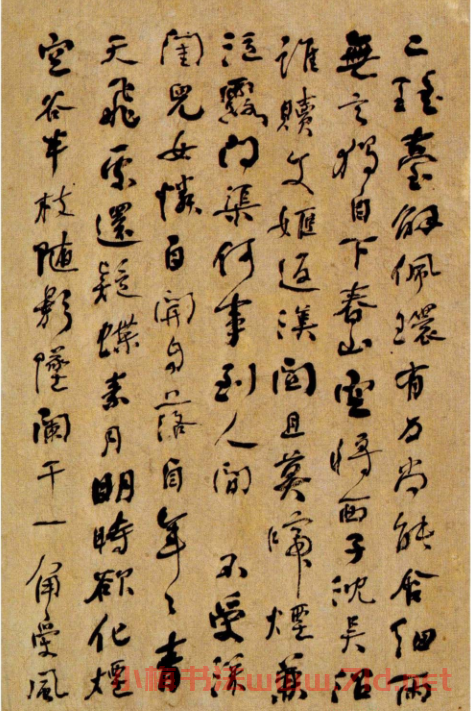 二瑤臺解佩環有力尚能含細雨
無言獨自下春山空將西子沈吳沼
誰贖文姬返漢關且莫啼煙兼
泣露問渠何事到人間 不受深
閨兒女憐自開自落自年々青
天飛處還疑蝶素月明時欲化煙
空谷半枝隨影墜闌干一角受風
小楠书法www.71d.net